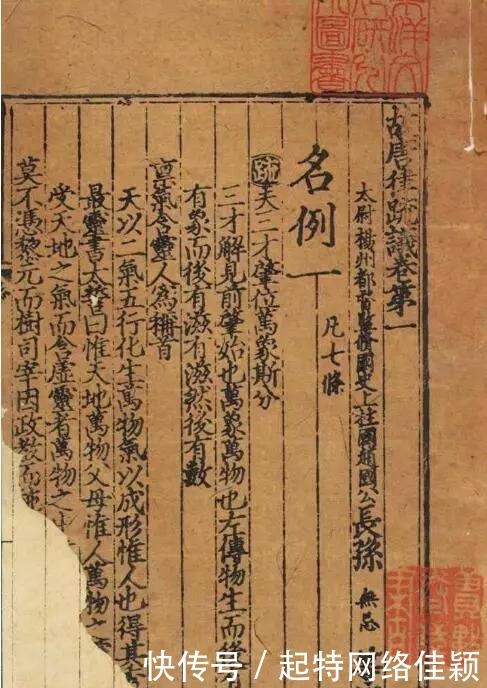 故唐律疏議卷第一
太尉揚州都督監修國史上柱國趙國公長孫無忌
名例一
凡七條
疏夫三才肇位萬象斯分
三才解見前肇始也萬象萬物也左傳物生而後
有象而後有滋有滋然後有數
稟氣含靈人為稱首
天以二氣五行化生萬物氣以成形惟人也得其
最靈書太誓曰惟天地萬物父母惟人萬物之
受天地之氣而含虛靈者萬物之
莫不憑黎元而樹司宰因政教而
快传号/起特网络佳颖